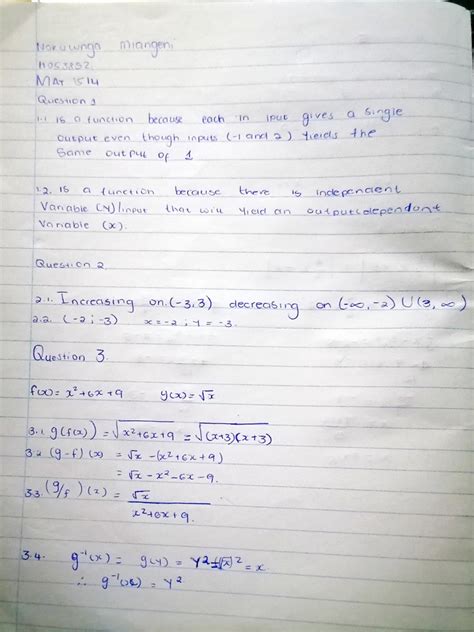 Nokuwnga Mlangeni
MAT 1514
Question 1
1.1 is a function because each in iput gives a single
output even though inputs (-1 and 2) yields the
same output of 1
1.2. is a function because there is independent
Variable (y)/input that will yield an output(dependant
Variable (x).
Question 2
2.1. Increasing on (-3,3) decreasing on (-∞,-2) ∪ (3, ∞)
2.2. (-2 ; -3) x = -2 ; y = -3.
Question 3.
f(x) = x²+6x+9 g(x) = √x
3.1 g(f(x)) = √x²+6x+9 = √(x+3)(x+3)
3.2 (g-f)(x) = √x - (x²+6x+9)
= √x - x² - 6x - 9.
3.3. (g/f)(x) = √x
x²+6x+9.
3.4. g⁻¹(x) = g(y) = y² = (√x)² = x
∴ g⁻¹(x) = y²